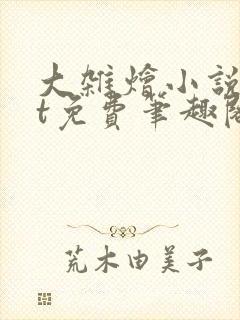 大雜燴小説
t免費筆趣閣
荒木由美子